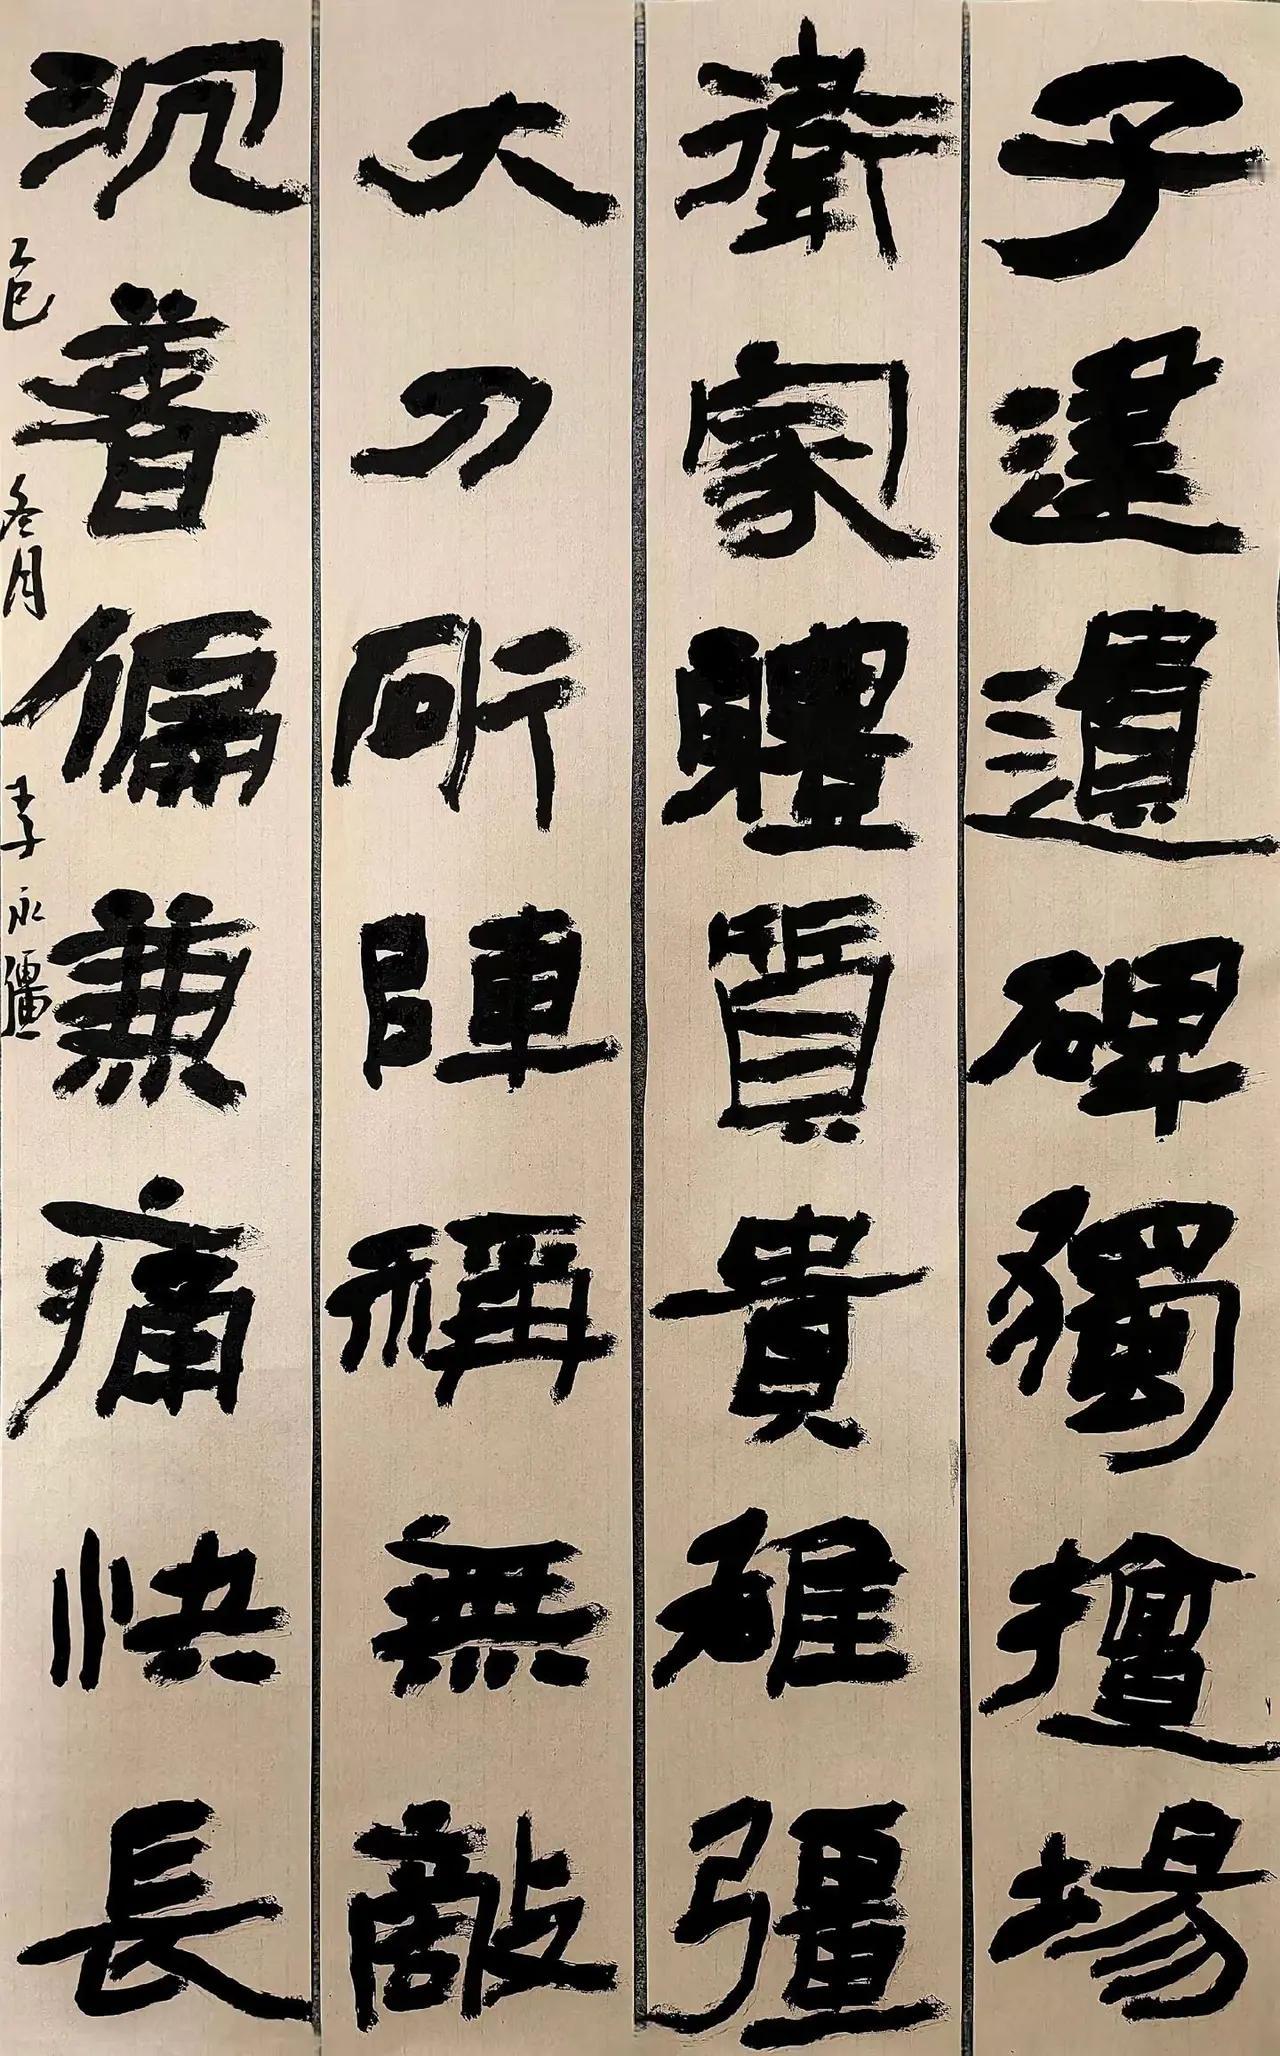 子建遺碑獨擅場
衛家體質貴雄彊
大刀斫陣稱無敵
沉着偏兼痛快長
乙巳冬月李永彊